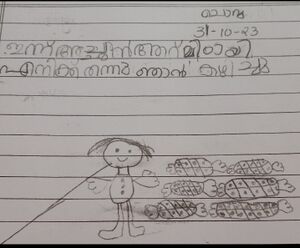 ചൊവ്വ
31-10-23
ഇന്ന് അച്ഛൻ ആറ് മിഠായി
എനിക്ക് തന്നു ഞാൻ കഴിച്ചു